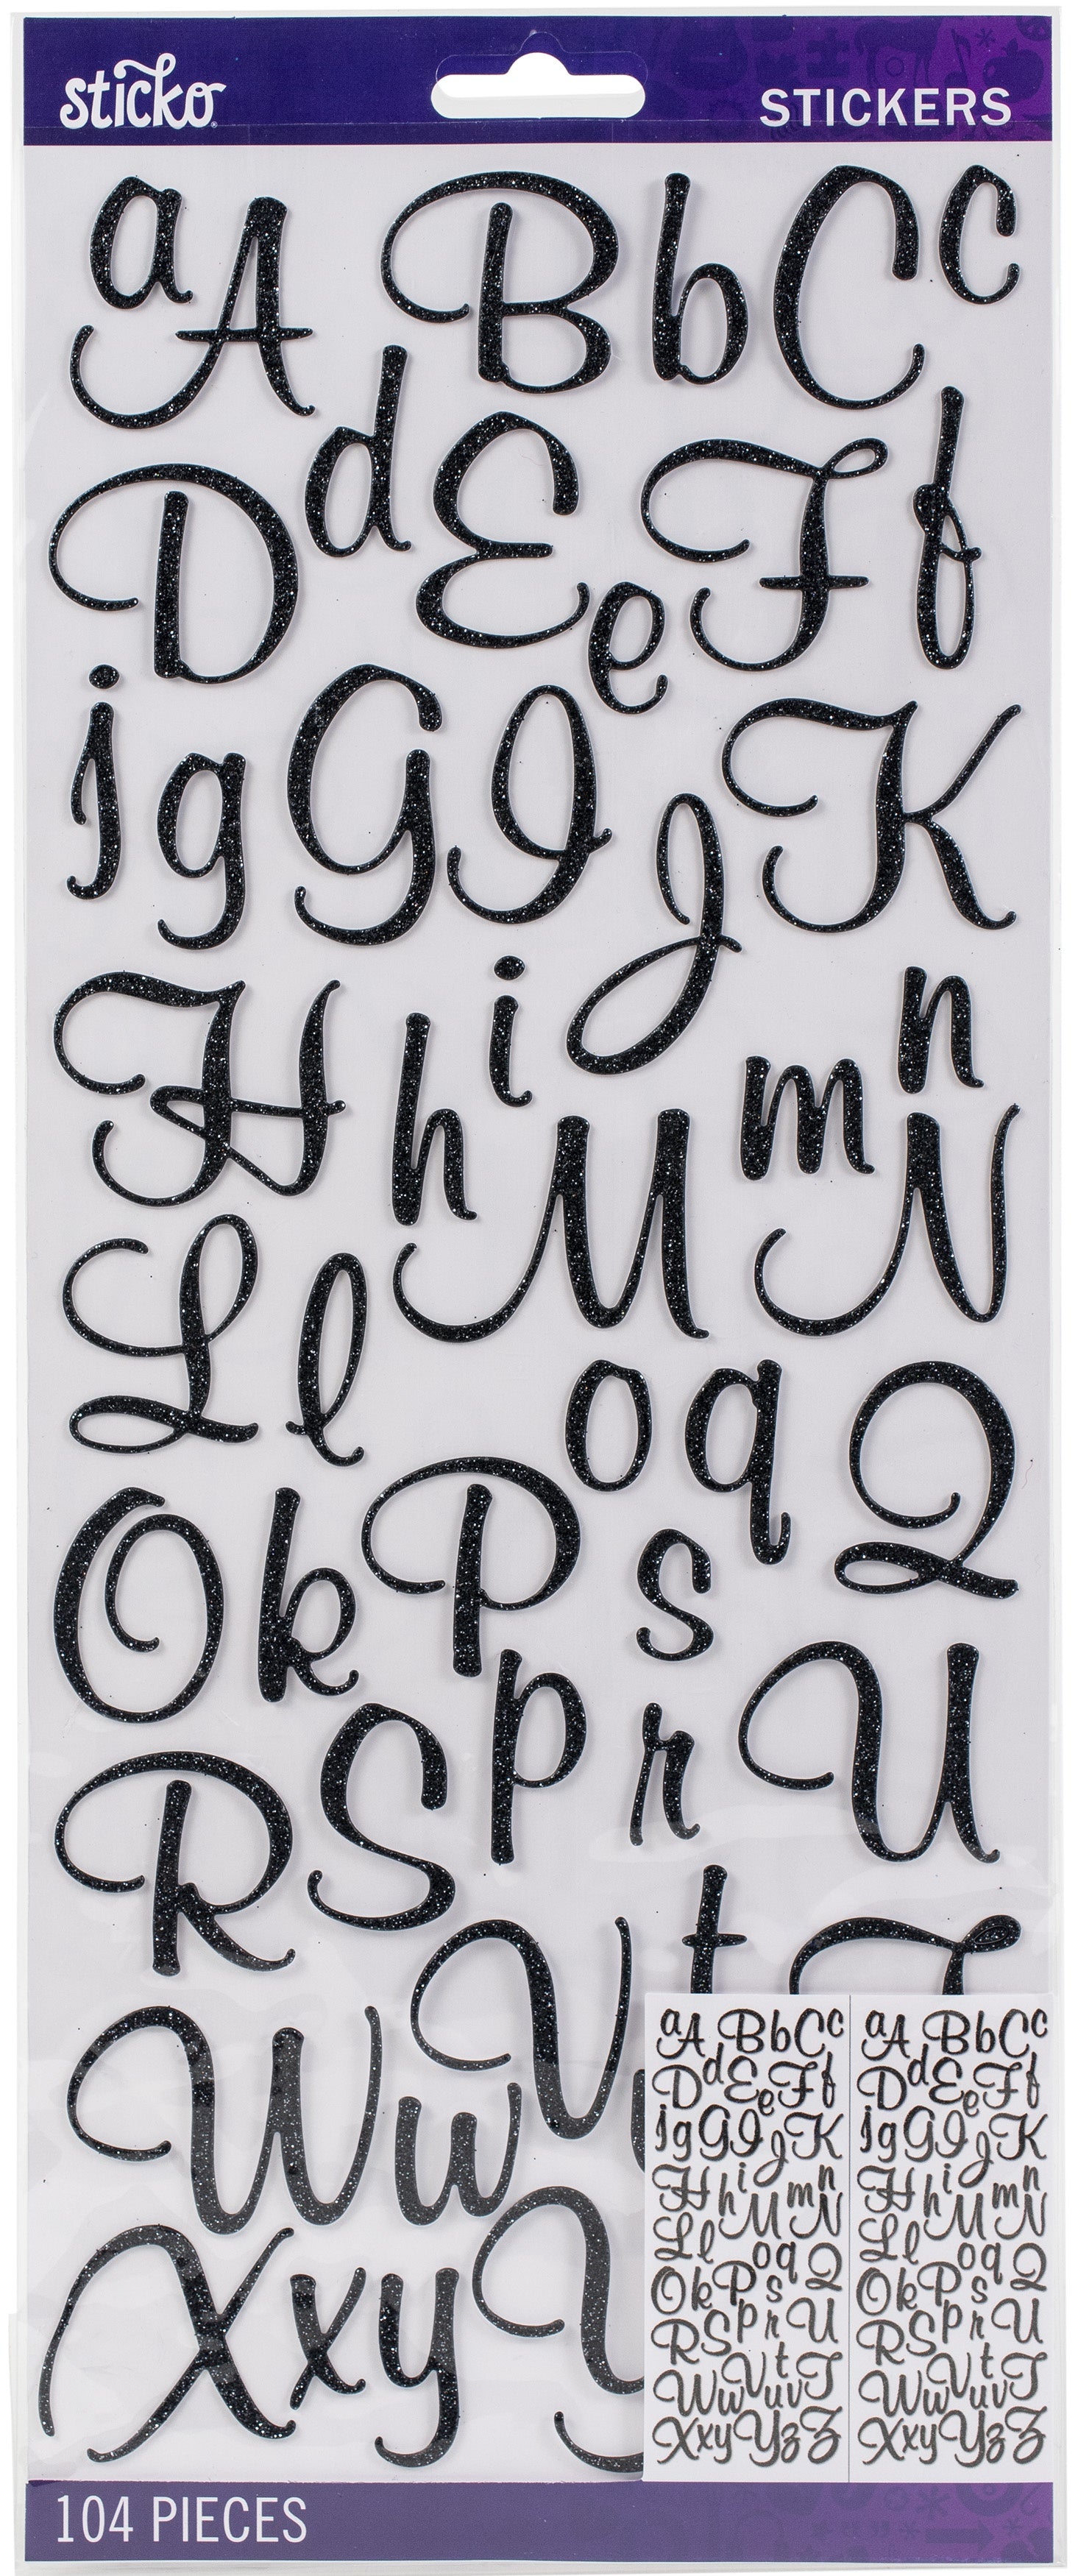 sticko
STICKERS
a A B b C c
D d E e F f
j g G I J K
H h i M m n N
L l o q Q
O k P p s
R S r U
W w V t T
X x y Y
a A B b C c
D d E e F f
j g G I J K
H h i M m n N
L l o q Q
O k P s
R S p r U
W w V t u v T
X x y Y z Z
a A B b C c
D d E e F f
j g G I J K
H h i M m n N
L l o q Q
O k P s
R S p r U
W w V t u v T
X x y Y z Z
104 PIECES